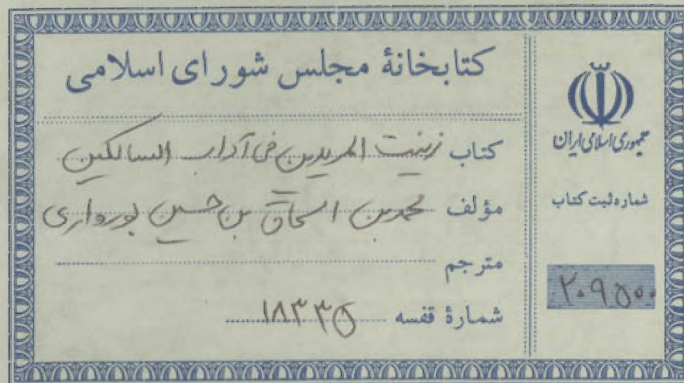 کتابخانهٔ مجلس شورای اسلامی
کتاب زینت المریدین فی آداب السالکین
مؤلف محمد بن اسحاق بن حسین
مترجم
شمارهٔ قفسه ۱۸۳۳۵
جمهوری اسلامی ایران
شماره ثبت کتاب
۲۰۹۵۰۰